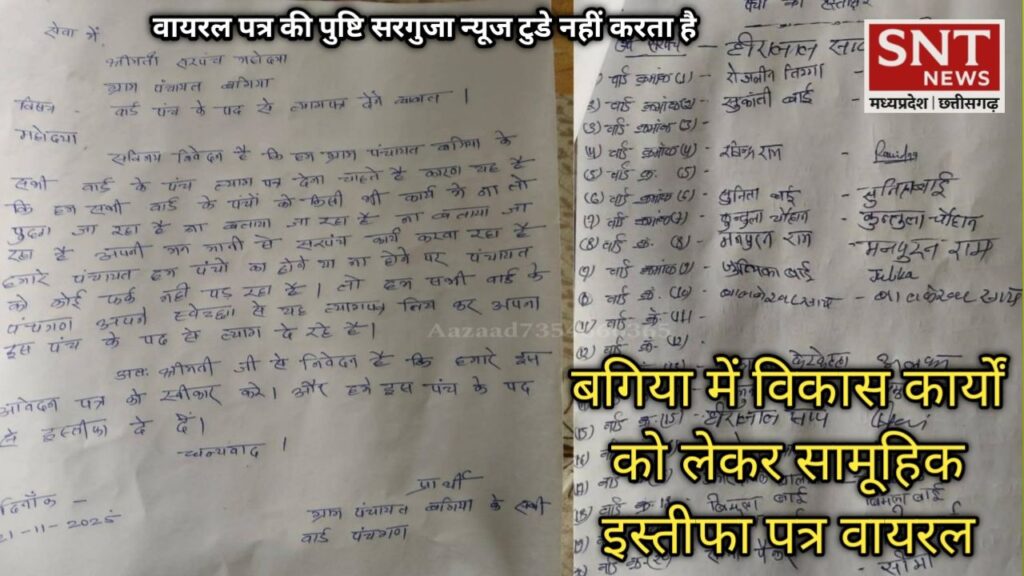 वायरल पत्र की पुष्टि सरगुजा न्यूज टुडे नहीं करता है
SNT
NEWS
मध्यप्रदेश | छत्तीसगढ़
सेवा में
श्रीमती सरपंच महोदया
ग्राम पंचायत बगिया
विषय - वार्ड पंच के पद से त्यागपत्र देने बाबत ।
महोदया
सविनय निवेदन है कि हम ग्राम पंचायत बगिया के
सभी वार्ड के पंच त्याग पत्र देना चाहते है कारण यह है
कि हम सभी वार्ड के पंचों को किसी भी कार्य में ना तो
पुछा जा रहा है ना बताया जा रहा है ना बताया जा
रहा है अपनी मन मानी से सरपंच कार्य करवा रहा है
हमारे पंचायत हम पंचो का होने या ना होने पर पंचायत
को कोई फर्क नही पड़ रहा है । तो हम सभी वार्ड के
पंचगण अपने स्वेच्छा से यह त्यागपत्र लिख कर अपना
इस पंच के पद से त्याग दे रहे है ।
अतः श्रीमती जी से निवेदन है कि हमारे इस
आवेदन पत्र को स्वीकार करे । और हमे इस पंच के पद
से इस्तीफा दे दें ।
धन्यवाद ।
प्रार्थी
ग्राम पंचायत बगिया के सभी
वार्ड पंचगण
दिनाँक -
21-11-2025
हस्ताक्षर
सरपंच - हीरालाल साय
1) वार्ड क्रमांक (1) -
2) वार्ड क्रमांक (2) - सुकांती बाई -
(3) वार्ड क्रमांक (3) -
(4) वार्ड क्रमांक (4) - रविन्द्र राम -
(5) वार्ड क्र. (5) -
(6) वार्ड क्रमांक (6) - सुनिता बाई - सुनिता बाई
(7) वार्ड क्रमांक (7) - कुन्तुला चौहान - कुन्तुला चौहान
(8) वार्ड क्र. (8) - मनपुरन राम - मनपुरन राम
(9) वार्ड क्रमांक (9) - बाई Julika
वार्ड क्र. (10) - बालकेश्वर साय - बालकेश्वर साय
वार्ड क्र. - 11 -
वार्ड क्र. - 12 -
वार्ड क्र. (15) - हीरालाल साय
बिमला बाई बिमला बाई
सीमा
बगिया में विकास कार्यों
को लेकर सामूहिक
इस्तीफा पत्र वायरल